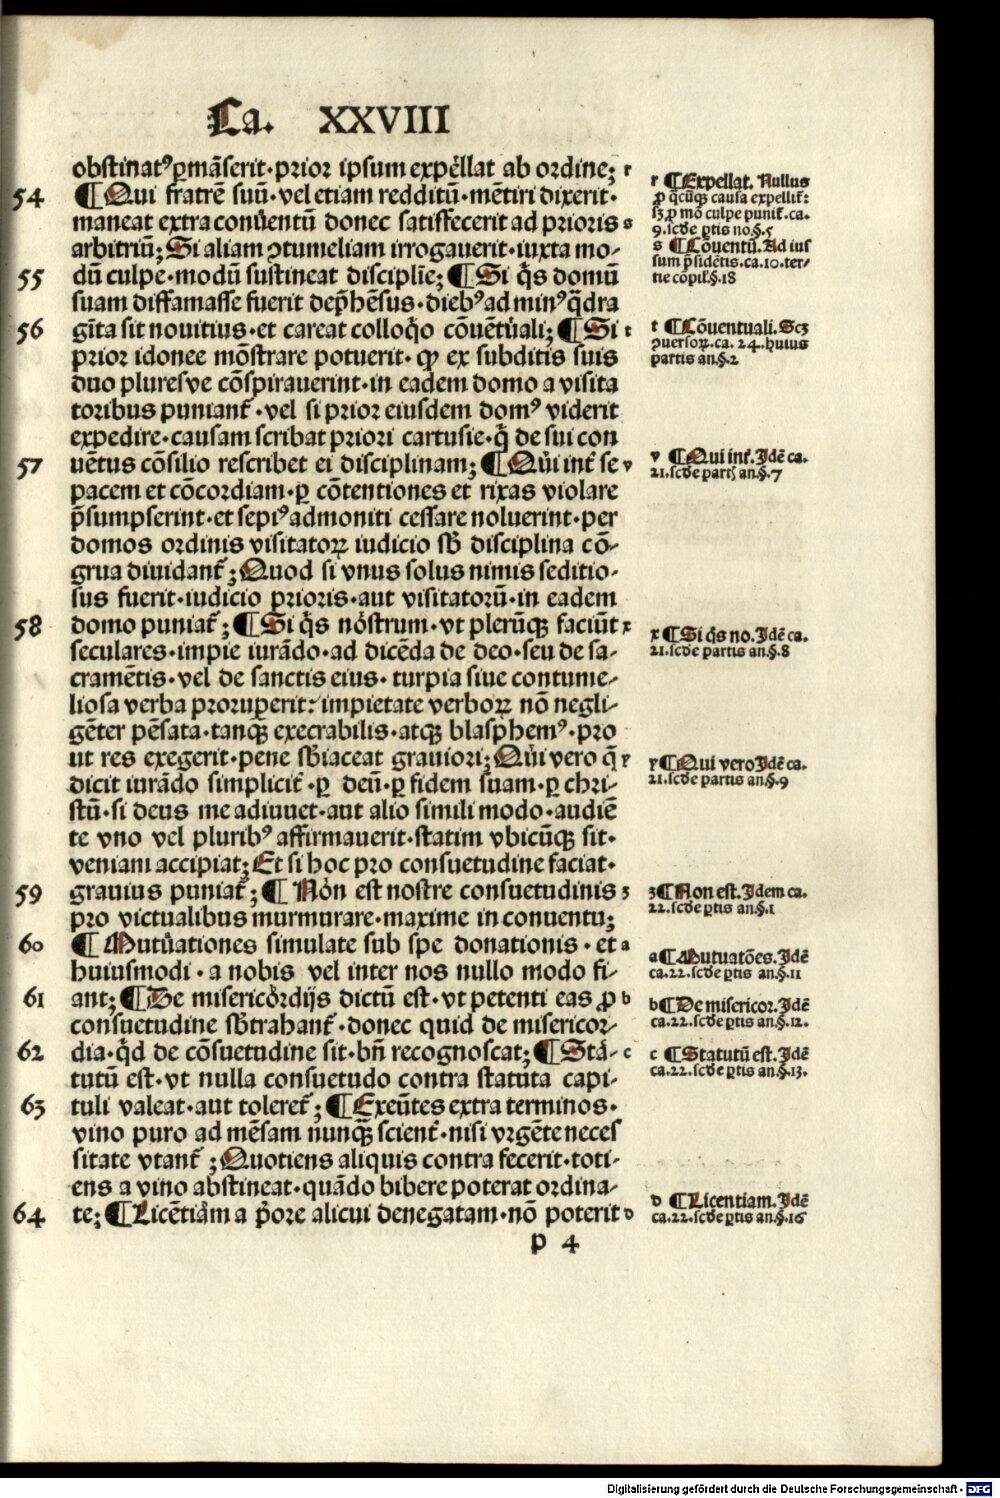 Ca. XXVIII
obstinatꝰ ꝑmāserit·prior ipsum expellat ab ordine; r
54 ¶Qui fratrē suū·vel etiam redditū·mētiri dixerit·
maneat extra conuentū donec satisfecerit ad prioris s
arbitriū; Si aliam ꝯtumeliam irrogauerit·iuxta mo-
55 dū culpe·modū sustineat disciplīe; ¶Si q̄s domū
suam diffamasse fuerit dep̄hēsus·diebꝰ ad minꝰ q̄dra
56 gīta sit nouitius·et careat colloq̄o cōuētuali; ¶Si t
prior idonee mōstrare potuerit·ꝙ ex subditis suis
duo pluresve cōspirauerint·in eadem domo a visita
toribus puniant᷑·vel si prior eiusdem domꝰ viderit
expedire·causam scribat priori cartusie·q̄ de sui con
57 uētus cōsilio rescribet ei disciplinam; ¶Qui int᷑ se v
pacem et cōcordiam·ꝑ cōtentiones et rixas violare
p̄sumpserint·et sepiꝰ admoniti cessare noluerint·per
domos ordinis visitatoꝝ iudicio sb̄ disciplina cō-
grua diuidant᷑; Quod si vnus solus nimis seditio-
sus fuerit·iudicio prioris·aut visitatorū·in eadem
58 domo puniat᷑; ¶Si q̄s nostrum·vt plerūqꝫ faciūt x
seculares·impie iurādo·ad dicēda de deo·seu de sa-
cramētis·vel de sanctis eius·turpia siue contume-
liosa verba proruꝑerit: impietate verboꝝ nō negli-
gēter pēsata·tanqꝫ execrabilis·atqꝫ blasphemꝰ·pro
ut res exegerit·pene sb̄iaceat grauiori; Qui vero q̄ y
dicit iurādo simplicit᷑·ꝑ deū·ꝑ fidem suam·ꝑ chri-
stū·si deus me adiuuet·aut alio simili modo·audiē
te vno vel pluribꝰ affirmauerit·statim vbicūqꝫ sit·
veniam accipiat; Et si hoc pro consuetudine faciat·
59 grauius puniat᷑; ¶Non est nostre consuetudinis z
pro victualibus murmurare·maxime in conuentu;
60 ¶Mutuationes simulate sub spe donationis·et a
huiusmodi·a nobis vel inter nos nullo modo fi-
61 ant; ¶De misericordijs dictū est·vt petenti eas ꝓ b
consuetudine sb̄trahant᷑·donec quid de misericor-
62 dia·q̄d de cōsuetudine sit·bn̄ recognoscat; ¶Sta- c
tutū est·vt nulla consuetudo contra statuta capi-
63 tuli valeat·aut toleret᷑; ¶Exeūtes extra terminos·
vino puro ad mēsam nunqꝫ scient᷑·nisi vrgēte neces
sitate vtant᷑; Quotiens aliquis contra fecerit·toti-
ens a vino abstineat·quādo bibere poterat ordina-
64 te; ¶Licētiam a p̄ore alicui denegatam·nō poterit d
p 4
r ¶Expellat. Nullus
ꝓ q̄cūqꝫ causa expellit᷑:
sꝫ ꝓ mō culpe punit᷑. ca.
9. scd̄e ꝑtis no.§.5
s ¶Cōuentū. Ad ius
sum p̄sidētis. ca. 10. ter-
tie cōpil.§.18
t ¶Cōuentuali. Scꝫ
ꝯuersoꝝ. ca. 24. huius
partis an.§.2
v ¶Qui int᷑. Idē ca.
21. scd̄e part᷑ an.§.7
x ¶Si q̄s no. Idē ca.
21. scd̄e partis an.§.8
y ¶Qui vero Idē ca.
21. scd̄e partis an.§.9
z ¶Non est. Idem ca.
22. scd̄e ꝑtis an.§.1
a ¶Mutuatōes. Idē
ca. 22. scd̄e ꝑtis an.§.11
b ¶De misericor. Idē
ca. 22. scd̄e ꝑtis an.§.12.
c ¶Statutū est. Idē
ca. 22. scd̄e ꝑtis an.§.13.
d ¶Licentiam. Idē
ca. 22. scd̄e ꝑtis an.§.16
Digitalisierung gefördert durch die Deutsche Forschungsgemeinschaft - DFG